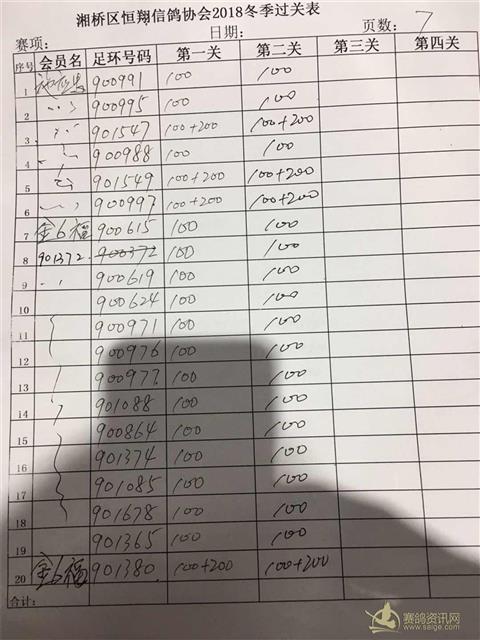 湘桥区恒翔信鸽协会2018冬季过关表
赛项: 日期: 页数: 7
序号 会员名 足环号码 第一关 第二关 第三关 第四关
1 900991 100 100
2 900995 100 100
3 901547 100+200 100+200
4 900988 100 100
5 901549 100+200 100+200
6 900997 100+200 100+200
7 金6福 900615 100 100
8 901372 900372 100 100
9 900619 100 100
10 900624 100 100
11 900971 100 100
12 900976 100 100
13 900977 100 100
14 901088 100 100
15 900864 100 100
16 901374 100 100
17 901085 100 100
18 901678 100 100
19 901365 100 100
20 金6福 901380 100+200 100+200
合计:
赛鸽资讯网
www.saige.com